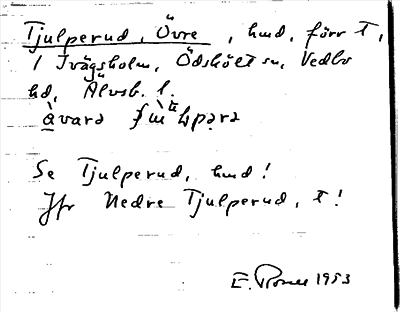 Tjulperud, Övre, hmd, förr T,
1 Ivägsholm, Ödskölt sn, Vedbo
hd, Älvsb. l.
Se Tjulperud, hmd!
Jfr Nedre Tjulperud, t!
E. 1953